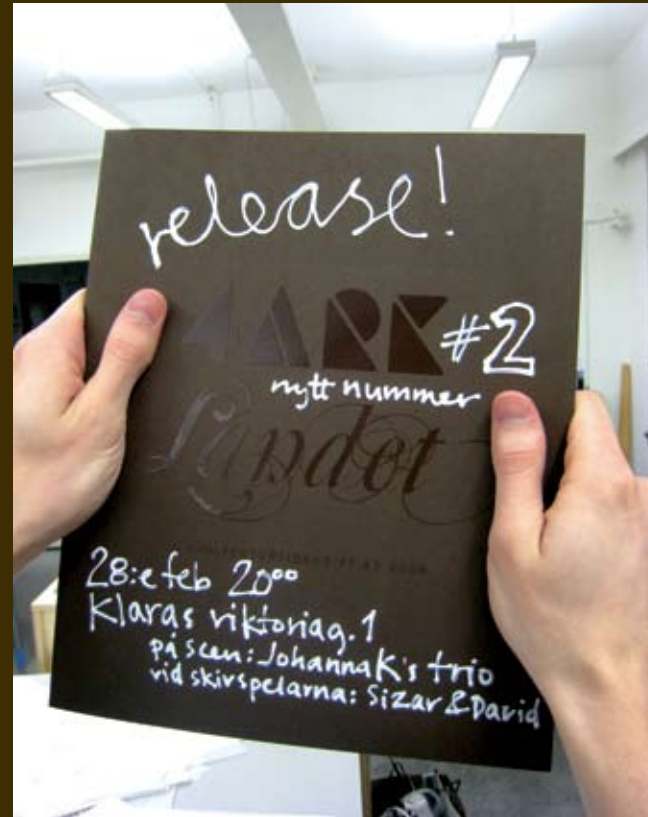 release!
MARK #2
nytt nummer
Ländet
28:e feb 20⁰⁰
Klaras viktoriag. 1
på scen: Johanna K's trio
vid skivspelarna: Sizar & David